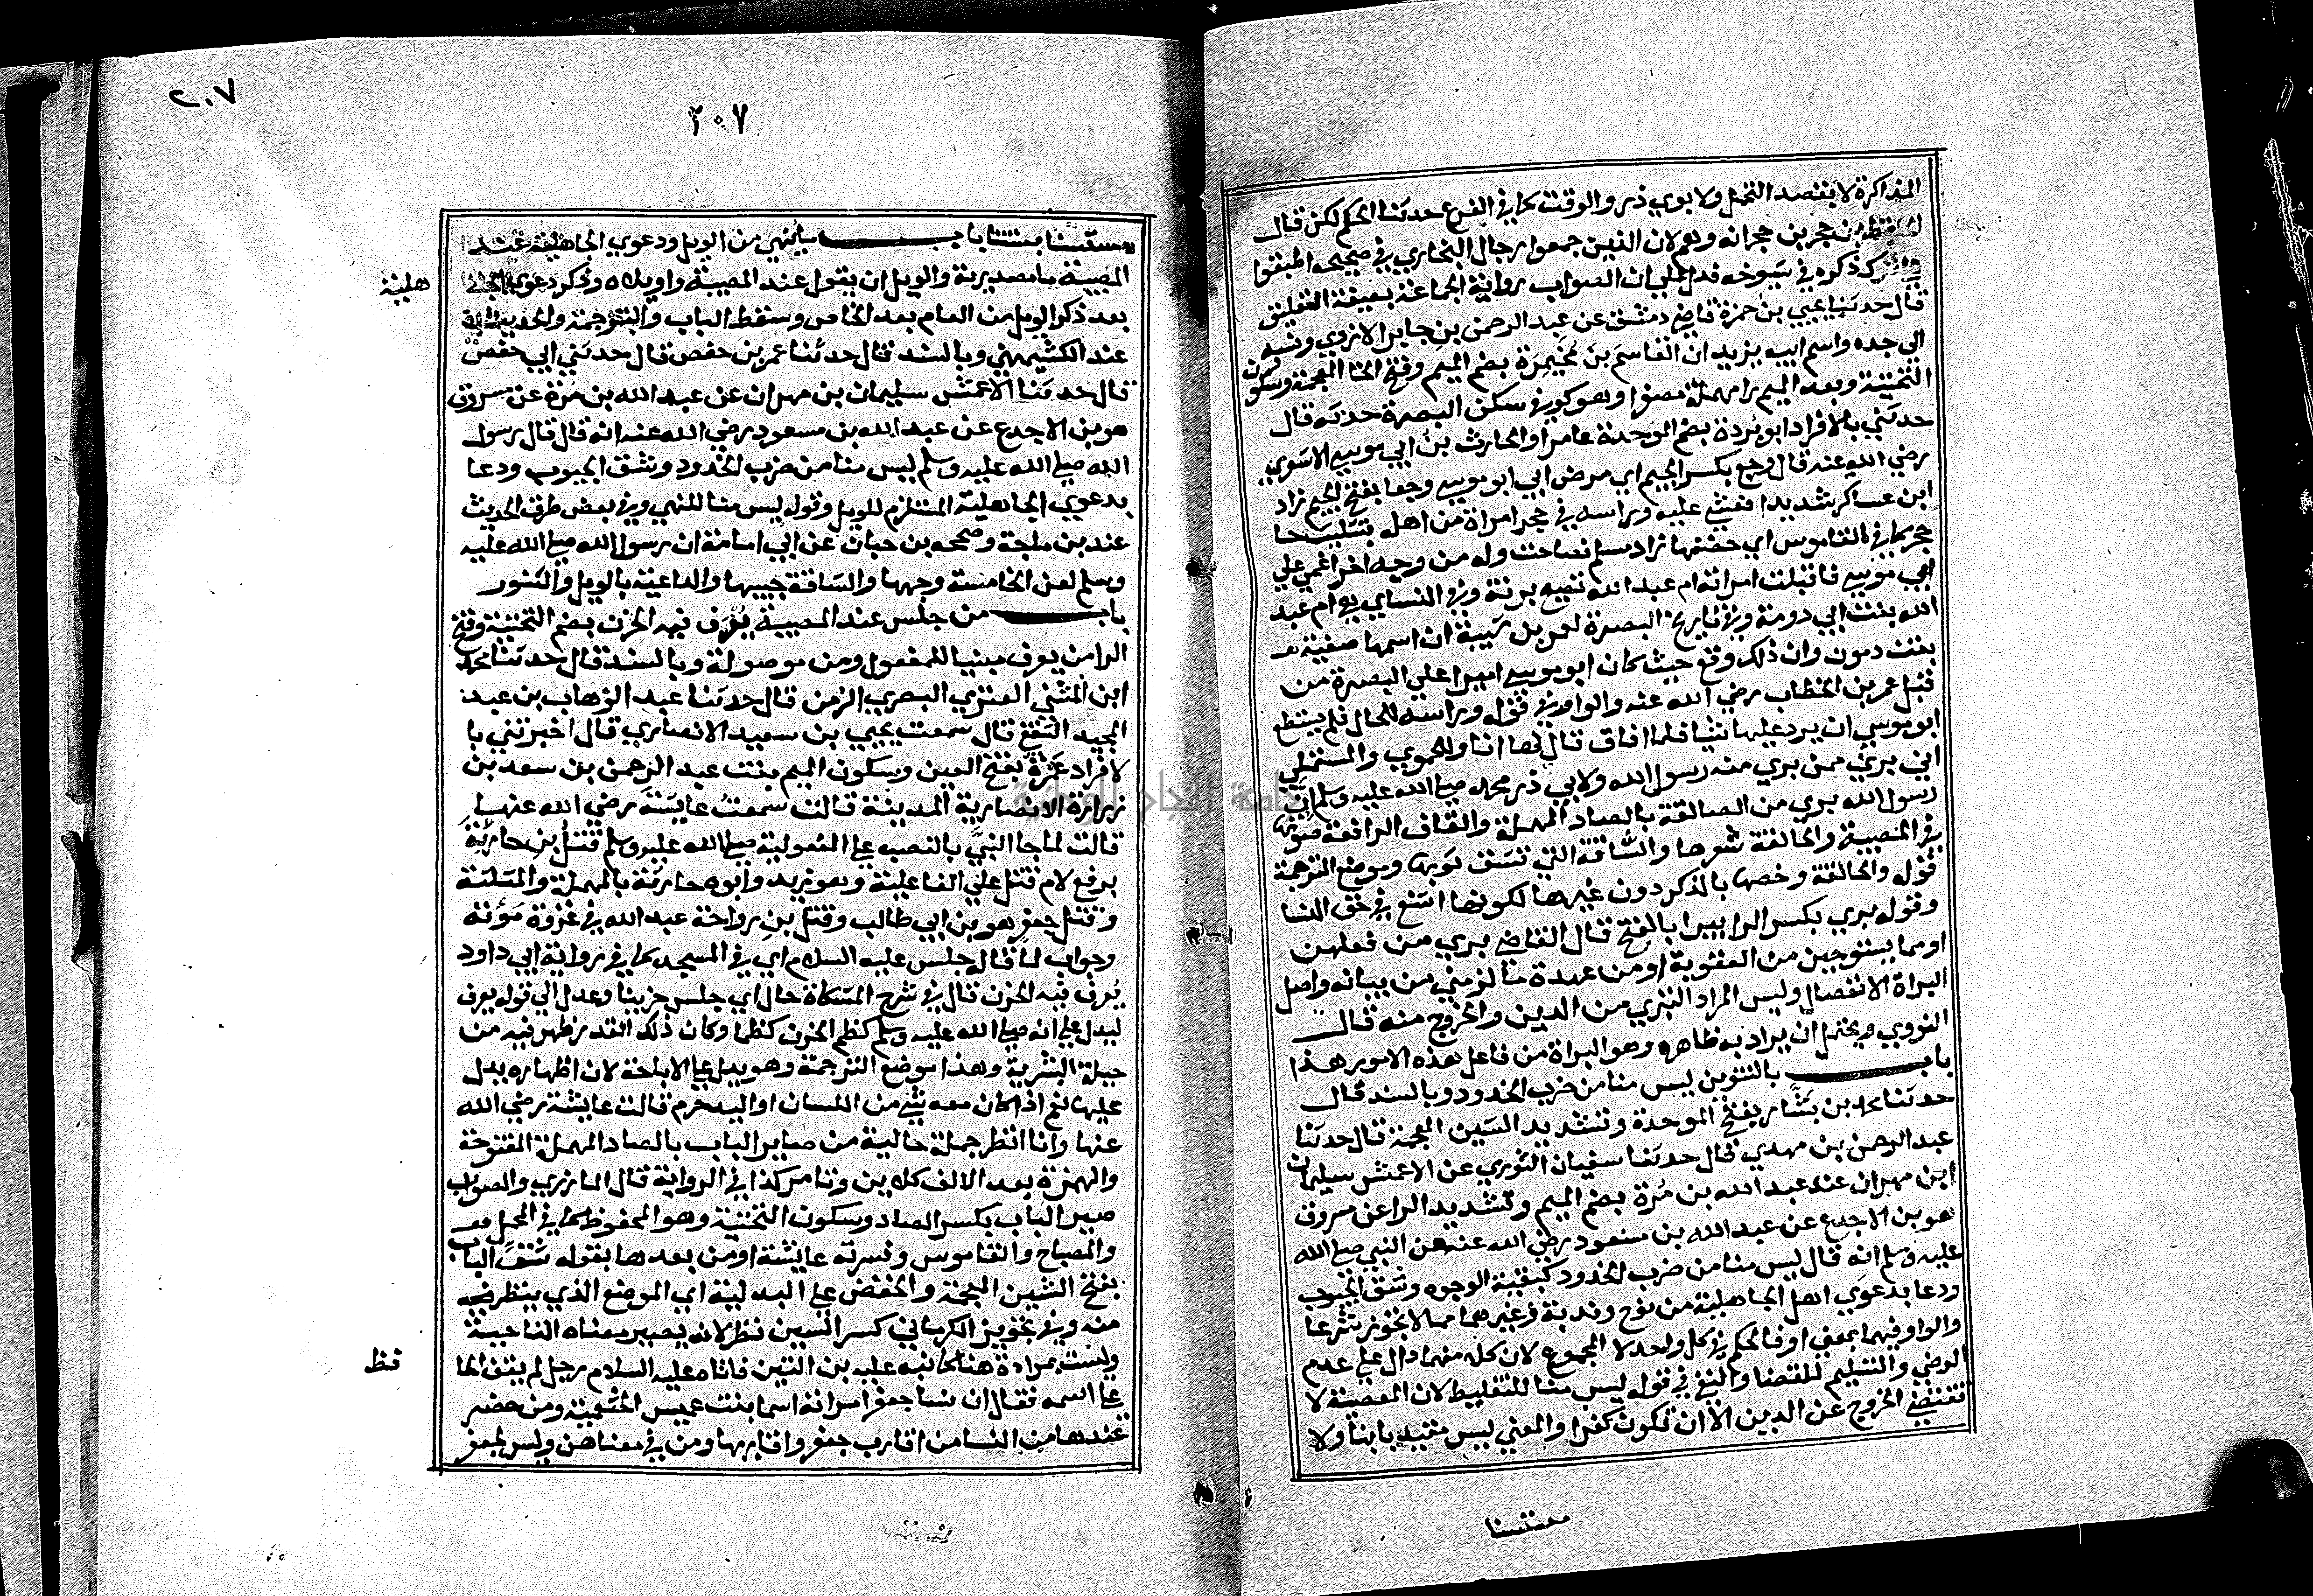 المذاكرة لا بقصد التحمل ولابوي ذر والوقت كما في الفرع حدثنا الحكم لكن قال
الحافظ بن حجر بن حجر انه وهم لان الذين جمعوا رجال البخاري في صحيحه اطبقوا
علي ترك ذكره في شيوخه فدل علي ان الصواب رواية الجماعة بصيغة التعليق
قال حدثنا يحيي بن حمزة قاضي دمشق عن عبد الرحمن بن جابر الازدي ونسبه
الي جده واسم ابيه يزيد ان القاسم بن مخيمرة بضم الميم وفتح الخا المعجمة وسكون
التحتية وبعد الميم را مهملة مصغرا وهو كوفي سكن البصرة حدثه قال
حدثني بالافراد ابو بردة بضم الموحدة عامر او الحارث بن ابي موسي الاشعري
رضي الله عنه قال وجع بكسر الجيم اي مرض ابي ابو موسي وجعا بفتح الجيم زاد
ابن عساكر شديدا فغشي عليه وراسه في حجر امراة من اهله بتثليث حا
حجر كما في القاموس اي حضنها زاد مسلم فصاحت وله من وجه اخر اغمي علي
ابي موسي فاقبلت امراته ام عبد الله تصيح برنة وفي النساي هي ام عبد
الله بنت ابي دومة وفي تاريخ البصرة لعمر بن شيبة ان اسمها صفية
بنت دمون وان ذلك وقع حيث كان ابو موسي اميرا علي البصرة من
قبل عمر بن الخطاب رضي الله عنه والواو في قوله وراسه للحال فلم يستطع
ابو موسي ان يرد عليها شيا فلما افاق قال لها انا وللحموي والمستملي
اني بري ممن بري منه رسول الله ولابي ذر محمد صلي الله عليه وسلم ان
رسول الله بري من الصالقة بالصاد المهملة والقاف الرافعة صوتها
في المصيبة والحالقة شعرها والشاقة التي تشق ثوبها وموضع الترجمة
قوله والحالقة وخصها بالذكر دون غيرها لكونها اشنع في حق النسا
وقوله بري بكسر الرا يبرا بالفتح قال القاضي بري من فعلهن
او مما يستوجبن من العقوبة او من عهدة ما لزمني من بيانه واصل
البراة الانفصال وليس المراد التبري من الدين والخروج منه قال
النووي ويحتمل ان يراد به ظاهره وهو البراة من فاعل هذه الامور هذا
باب بالتنوين ليس منا من ضرب الخدود وبالسند قال
حدثنا محمد بن بشار بفتح الموحدة وتشديد الشين المعجمة قال حدثنا
عبد الرحمن بن مهدي قال حدثنا سفيان الثوري عن الاعمش سليمان
ابن مهران عند عبد الله بن مرة بضم الميم وتشديد الرا عن مسروق
هو بن الاجدع عن عبد الله بن مسعود رضي الله عنه عن النبي صلي الله
عليه وسلم انه قال ليس منا من ضرب الخدود كبقية الوجوه وشق الجيوب
ودعا بدعوي اهل الجاهلية من نوح وندبة وغيرهما مما لا يجوز شرعا
والواو فيهما بمعني او فالحكم في كل واحد لا المجموع لان كلا منهما دال علي عدم
الرضي والتسليم للقضا والنفي في قوله ليس منا للتغليظ لان المعصية لا
تقتضي الخروج عن الدين الا ان تكون كفرا والمعني ليس مقتديا بنا ولا
مستسنا
٢٠٧
٢٠٧
مستسنا بسنتنا باب ما ينهي من الويل ودعوي الجاهلية عند
المصيبة ما مصدرية والويل ان يقول عند المصيبة واويلاه وذكر دعوي الجاهلية
هلية
بعد ذكر الويل من العام بعد الخاص وسقط الباب والترجمة والحديث
عند الكشميهني وبالسند قال حدثنا عمر بن حفص قال حدثني ابي حفص
قال حدثنا الاعمش سليمان بن مهران عن عبد الله بن مرة عن مسروق
هو بن الاجدع عن عبد الله بن مسعود رضي الله عنه انه قال قال رسول
الله صلي الله عليه وسلم ليس منا من ضرب الخدود وشق الجيوب ودعا
بدعوي الجاهلية المستلزم للويل وقوله ليس منا للنهي وفي بعض طرق الحديث
عند بن ماجة وصححه بن حبان عن ابي امامة ان رسول الله صلي الله عليه
وسلم لعن الخامشة وجهها والشاقة جيبها والداعية بالويل والثبور
باب من جلس عند المصيبة يعرف فيه الحزن بضم التحتية وفتح
الرا من يعرف مبنيا للمفعول ومن موصولة وبالسند قال حدثنا محمد
ابن المثني العنزي البصري الزمن قال حدثنا عبد الوهاب بن عبد
المجيد الثقفي قال سمعت يحيي بن سعيد الانصاري قال اخبرتني با
لافراد عمرة بفتح العين وسكون الميم بنت عبد الرحمن بن سعد بن
زرارة الانصارية المدينة قالت سمعت عايشة رضي الله عنها
قالت لما جا النبي بالنصب علي المفعولية صلي الله عليه وسلم قتل بن حارثة
برفع لام قتل علي الفاعلية وهو زيد وابوه حارثة بالمهملة والمثلثة
وقتل جعفر هو بن ابي طالب وقتل بن رواحة عبد الله في غزوة موتة
وجواب لما قاله جلس عليه السلام اي في المسجد كما في رواية ابي داود
يعرف فيه الحزن قال في شرح المشكاة حال اي جلس حزينا وعدل الي قوله يعرف
ليدل علي انه صلي الله عليه وسلم كظم الحزن كظما وكان ذلك القدر ظهر فيه من
جبلة البشرية وهذا موضع الترجمة وهو يدل علي الاباحة لان اظهاره يدل
عليها نعم اذا كان معه شي من اللسان او اليد حرم قالت عايشة رضي الله
عنها وانا انظر جملة حالية من صاير الباب بالصاد المهملة المفتوحة
والهمزة بعد الالف كلابن وتامر كذا في الرواية قال المازري والصواب
صير الباب بكسر الصاد وسكون التحتية وهو المحفوظ كما في المجمل
والصحاح والقاموس وفسرته عايشة او من بعدها بقوله شق الباب
بفتح الشين المعجمة والخفض علي البدلية اي الموضع الذي ينظر فيه
منه وفي تجويز الكرماني كسر الشين نظر لانه يصير معناه الناحية
وليست بمرادة هنا كما نبه عليه بن التين فاتاه عليه السلام رجل لم يقف الحا
فظ
علي اسمه فقال ان نسا جعفر امراته اسما بنت عميس الخثعمية ومن حضر
عندها من النسا من اقارب جعفر واقاربها ومن في معناهن وليس لجعفر
جامعة النجاح الوطنية